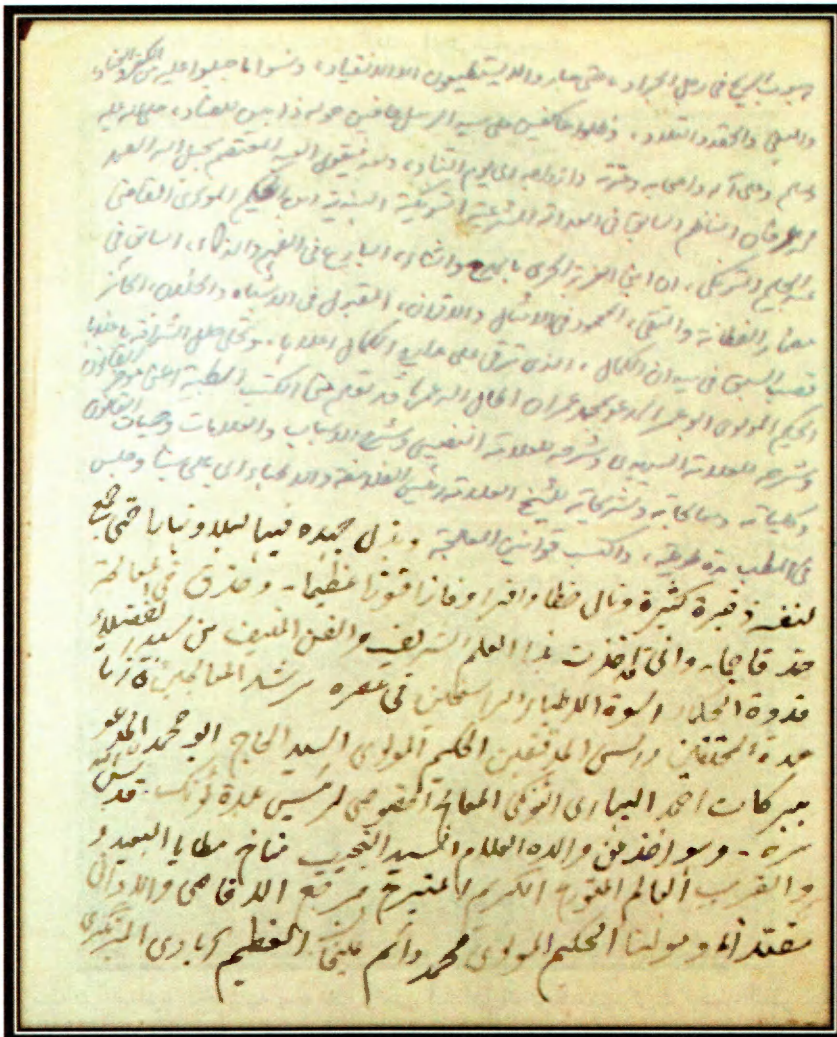 هبوب الريح في رجل الجراد، حتى صار والا يستطيعون الا الانقياد، ونسوا ما جبلوا عليه من الكبر والعناد
والبغي والحقد والتلاد، وظلوا عاكفين على سيد الرسل حافين حوله ذاهبين للعناد، صلى الله عليه
وسلم وعلى آله واصحابه وعترته وازواجه الى يوم التناد، وبعد فيقول اليه المعتصم بحبل الله
فان الناظم السابق في العدالة الشرعية التونكية ابن الحكيم المولوي القاضي
عبد الحليم التونكي، ان ابني العزيز الحري البارع في الفهم والذكاء، السابق في
مضمار الفطانة والتقى، المحمود في الامثال والاقران، المقبول في الاشباه والخلان، الحائز
قصب السبق في ميدان الكمال، الذي ترقى على مدارج الكمال اعلاها، وتحلى حلل الشرافة
الحكيم المولوي ابو عمران المدعو محمد عمران الخان قد تعلم مني الكتب الطبية اعني موجز القانون
وشرحه للعلامة السديدي وشرحه للعلامة النفيسي وشرح الاسباب والعلامات وحميات القانون
وكلياته ومعالجاته وتشريحاته للشيخ العلامة رئيس الفلاسفة والاطباء ابي علي سينا وجلس
في المطب مدة طويلة، واكتسب قوانين المعالجة وبذل جهده فيها ليلا ونهارا حتى جمع
لنفسه ذخيرة كثيرة ونال حظا وافرا وفاز فوزا عظيما۔ وحذق في المعالجة
حذقا واني قد اخذت هذا العلم الشريف والفن المنيف من سيد الفضلاء
قدوة الحكماء اسوة الاطباء الراسخين في عصره مرشد المعالجين في زمانه
عمدة المحققين ورئيس المدققين الحكيم المولوي السيد الحاج ابو محمد المدعو
ببركات احمد البهاري التونكي المعالج المخصوص لرئيس بلدة تونك۔ قدس الله
سره۔ وهو اخذ من والده العلام السيد النجيب مناخ مطايا البعيد و
والقريب العالم المتورع الكريم المتبرع مرجع الاقاصي والاداني
مقتدانا ومولنا الحكيم المولوي محمد دائم علي العظيم آبادي